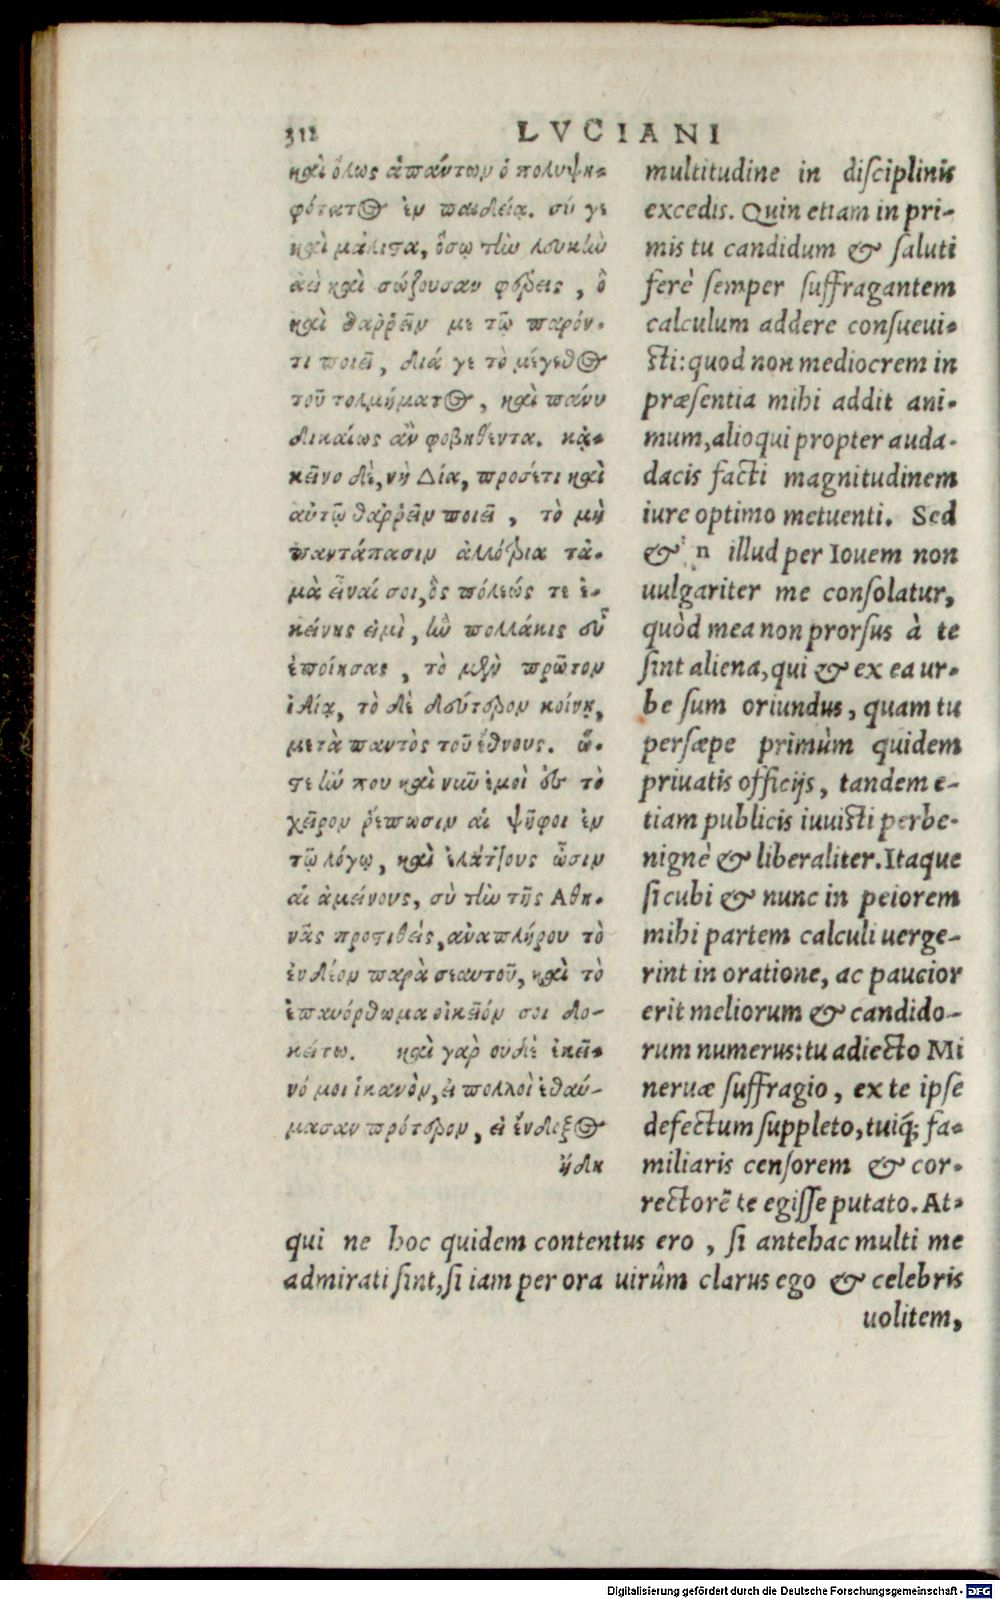 312 LVCIANI
καὶ ὅλως ἁπάντων ὁ πολυψη-
φότατος ἐν παιδείᾳ. σύ γε
καὶ μάλιστα, ὅσῳ τὴν λευκὴν
ἀεὶ καὶ σώζουσαν φέρεις, ὃ
καὶ θαῤῥεῖν με τῷ παρόν-
τι ποιεῖ, διά γε τὸ μέγεθος
τοῦ τολμήματος, καὶ πάνυ
δικαίως ἂν φοβηθέντα. κἀ-
κεῖνο δὲ, νὴ Δία, προσέτι καὶ
αὐτῷ θαῤῥεῖν ποιεῖ, τὸ μὴ
παντάπασιν ἀλλότρια τἀ-
μὰ εἶναί σοι, ὃς πόλεώς τε ἐ-
κείνης εἰμὶ, ἣν πολλάκις εὖ
ἐποίησας, τὸ μὲν πρῶτον
ἰδίᾳ, τὸ δὲ δεύτερον κοινῇ,
μετὰ παντὸς τοῦ ἔθνους. ὥ-
στε ἤν που καὶ νῦν ἐμοὶ ἐπὶ τὸ
χεῖρον ῥέπωσιν αἱ ψῆφοι ἐν
τῷ λόγῳ, καὶ ἐλάττους ὦσιν
αἱ ἀμείνους, σὺ τὴν τῆς Ἀθη-
νᾶς προστιθεὶς, ἀναπλήρου τὸ
ἐνδέον παρὰ σεαυτοῦ, καὶ τὸ
ἐπανόρθωμα οἰκεῖόν σοι δο-
κείτω. καὶ γὰρ οὐδὲ ἐκεῖ-
νό μοι ἱκανὸν, εἰ πολλοὶ ἐθαύ-
μασαν πρότερον, εἰ ἔνδοξος
ἤδη
multitudine in disciplinis
excedis. Quin etiam in pri-
mis tu candidum & saluti
ferè semper suffragantem
calculum addere consueui-
sti: quod non mediocrem in
præsentia mihi addit ani-
mum, alioqui propter auda-
dacis facti magnitudinem
iure optimo metuenti. Sed
& illud per Iouem non
uulgariter me consolatur,
quòd mea non prorsus à te
sint aliena, qui & ex ea ur-
be sum oriundus, quam tu
persæpe primùm quidem
priuatis officijs, tandem e-
tiam publicis iuuisti perbe-
nignè & liberaliter. Itaque
sicubi & nunc in peiorem
mihi partem calculi uerge-
rint in oratione, ac paucior
erit meliorum & candido-
rum numerus: tu adiecto Mi
neruæ suffragio, ex te ipse
defectum suppleto, tuiq; fa-
miliaris censorem & cor-
rectorē te egisse putato. At-
qui ne hoc quidem contentus ero, si antehac multi me
admirati sint, si iam per ora uirûm clarus ego & celebris
uolitem,
Digitalisierung gefördert durch die Deutsche Forschungsgemeinschaft - DFG